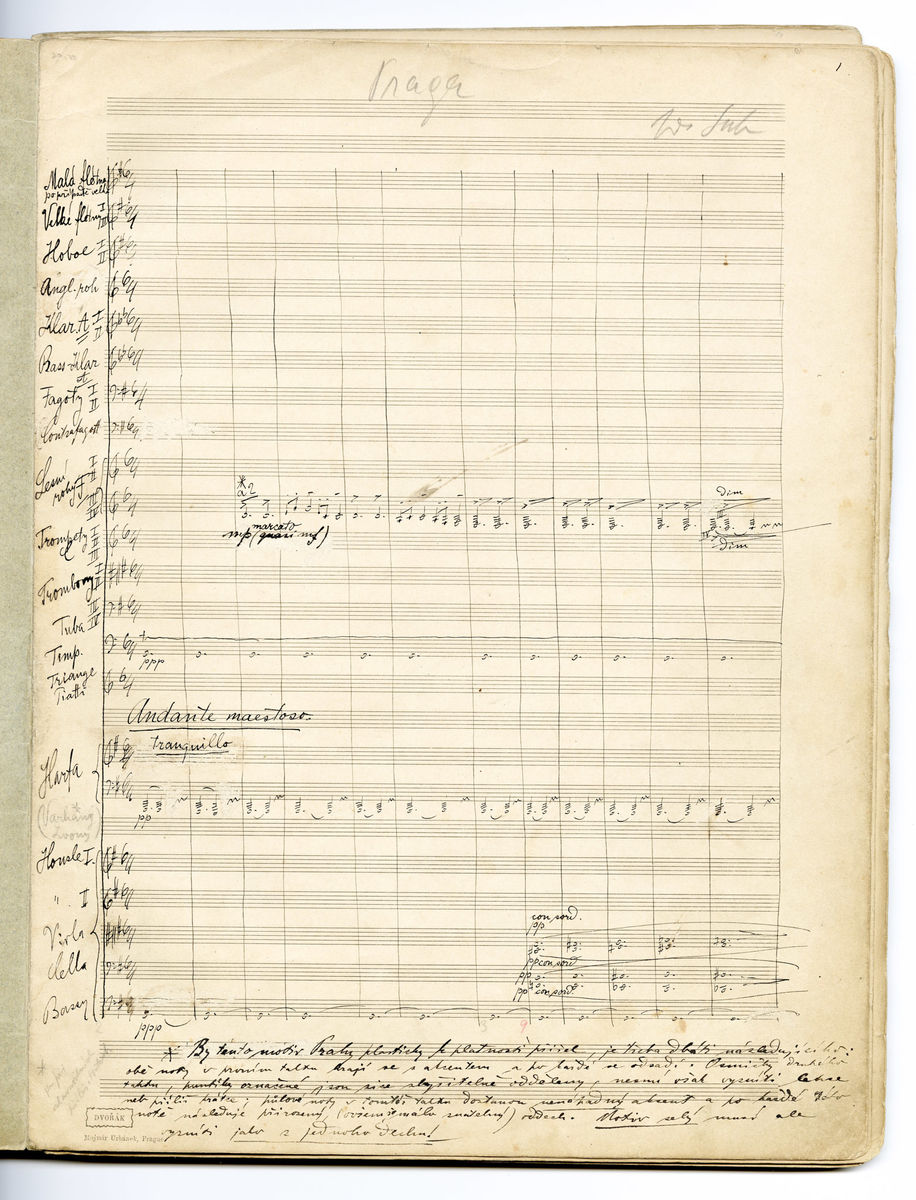 1
Praga
Jos Suk
Malá flétna
po případě velk.
Velké flétny I III
Hoboe I II
Angl. roh
Klar. A I II
Bass-Klar
Fagoty I II
Contrafagott
Lesní rohy I II III IV
*
a2
dim
marcato
mp (quasi mf)
dim
Trompety I II III
Trombony I II
III
Tuba IV
Timp.
ppp
Triangl
Piatti
Andante maestoso.
tranquillo
Harfa
pp
(Varhany *
zvony)
Housle I.
" II
con sord.
pp
Viola
pp con sord
Cella
pp
pp con sord.
Bassy
ppp
3 9
* By tento motiv Prahy plasticky k platnosti přišel, je třeba dbáti následujícího:
obě noty v prvním taktu hrají se s akcentem a po každé se odsadí. Osmičky druhého
taktu, puntíky označené, jsou sice slyšitelně odděleny, nesmí však vyzníti lehce
neb příliš krátce; půlové noty v taktu dostanou akcent a po každé
notě následuje přirozený, (ovšem málo znatelný) oddech. Motiv celý musí ale
vyzníti jako z jednoho dechu!
DVOŘÁK
Mojmír Urbánek, Prague